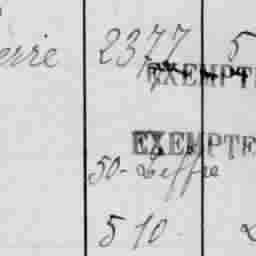 erre 2377 5
EXEMPTE
EXEMPTE
50-Leffre
510